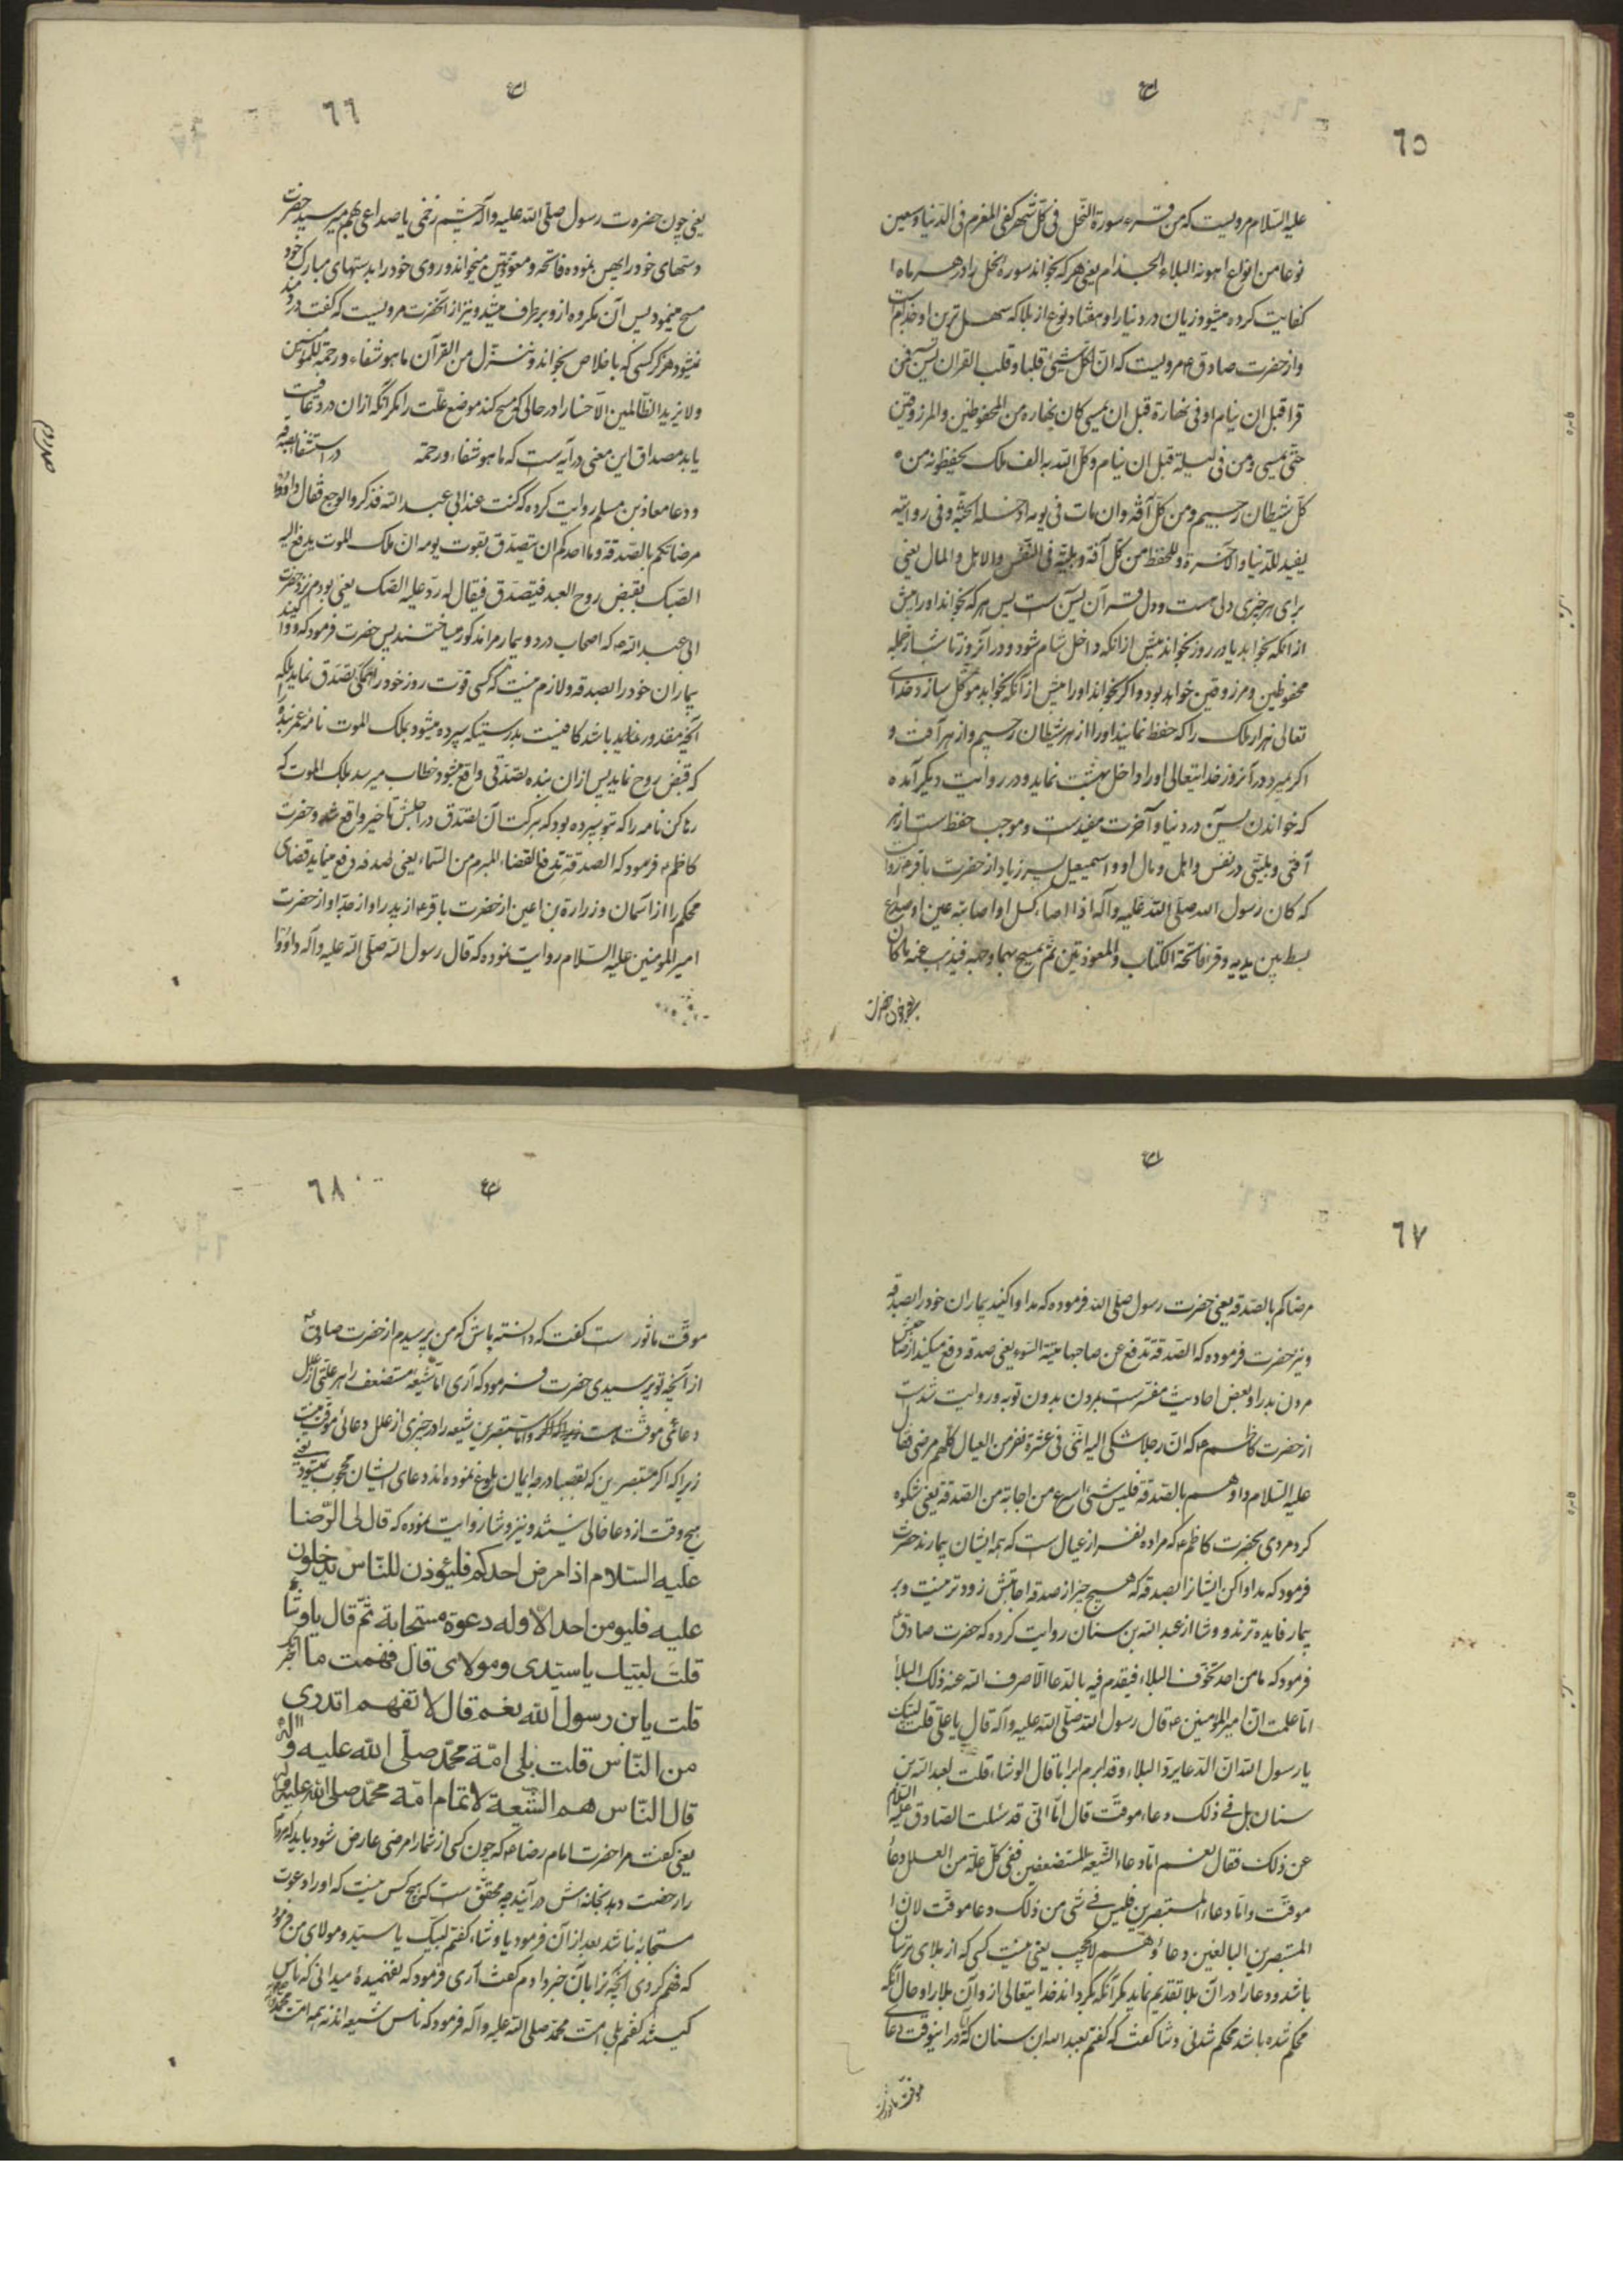 ٦٥
علیه السّلام مرویست که من قرء سورة النّحل فی کلّ شهر کفی المغرم فی الدّنیا و سبعین
نوعا من انواع اهونه البلاء الجذام یعنی هر که بخواند سورهٔ النحل را در هر ماه
کفایت کرده میشود زیان در دنیا را و هفتاد نوع از بلا که سهل ترین او جذام است
و از حضرت صادق ع مرویست که انّ لکلّ شیئ قلبا و قلب القران یسۤ فمن
قرا قبل ان ینام او فی نهارة قبل ان یمسی کان نهاره من المحفوظین و المرزوقین
حتّی یمسی و من فی لیلة قبل ان ینام وکّل الله به الف ملک یحفظونه من
کلّ شیطان رجیم و من کلّ آفة و ان مات فی یومه ادخله الجنّة و فی روایته
یفید للدّنیا و الآخرة و للحفظ من کلّ آفة و بلیّة فی النّفس و الاهل و المال یعنی
برای هر چیزی دلی هست و دل قرآن یسۤ ست پس هر که بخواند او را پیش
از انکه بخوابد یا در روز بخواند پیش از انکه داخل شام شود و در آنروز تا شب از جمله
محفوظین و مرزوقین خواهد بود و اگر بخواند او را پیش از آنکه بخوابد موکّل سازد خدای
تعالی هزار ملک را که حفظ نمایند او را از هر شیطان رجیم و از هر آفت و
اگر بمیرد در آنروز خدایتعالی او را داخل بهشت نماید و در روایت دیگر آمده
که خواندن یسۤ در دنیا و آخرت مفیدست و موجب حفظ ست از هر
آفتی و بلیّتی در نفس و اهل و مال او و اسمعیل بسر زیاد از حضرت باقر ع روا
که کان رسول الله صلّی الله علیه و آله اذا اصابه کسل او اصابته عین او صداع
بسط بین یدیه و قرا فاتحة الکتاب و المعوذتین ثمّ یمسح بهما وجهه فیذهب عنه ما کان
یعنی چون حضرت
٦٦
یعنی چون حضرت رسول صلّی الله علیه و آله چشم زخمی یا صداعی بهم میرسید حضرت
دستهای خود را پهن نموده فاتحه و معوذتین میخواند و روی خود را بدستهای مبارک خود
مسح مینمود پس آن مکروه از و برطرف میشد و نیز از آنحضرت مرویست که گفت درد مند
نمیشود هرگز کسی که باخلاص بخواند و ننزّل من القرآن ما هو شفاء و رحمة للمؤمنین
و لا یزید الظّالمین الّا خسارا در حالی که مسح کند موضع علّت را مگر آنکه از ان درد عافیت
یابد مصداق این معنی در آیه ست که ما هو شفاء و رحمة در استشفا بصدقه
و دعا معاذ بن مسلم روایت کرده که کنت عند ابی عبد الله فذکروا الوجع فقال داووا
مرضاکم بالصّدقة و ما احدکم ان یتصدّق بقوت یومه انّ ملک الموت یدفع الیه
الصّک بقبض روح العبد فیتصدّق فیقال له ردّ علیه الصّک یعنی بودم نزد حضرت
ابی عبد الله ع که اصحاب درد و بیمار مرا مذکور میاختند پس حضرت فرمود که دوا کنید
بیماران خود را بصدقه و لازم نیست که کسی قوّت روز خود را همگی تصدّق نماید بلکه
آنچه مقدور نماید باشد کافیست بدرستیکه سپرده میشود بملک الموت نامهٔ عمر بنده
که قبض روح نماید پس از ان بنده تصدّقی واقع میشود خطاب میرسد بملک الموت که
رها کن نامه را که بتو سپرده بود که ببرکت آن تصدّق در اجلش تأخیر واقع شد و حضرت
کاظم ع فرمود که الصدقة تدفع القضاء المبرم من السّماء یعنی صدقه دفع مینماید قضای
محکم را از آسمان و زرارة بن اعین از حضرت باقر ع از پدر او از جدّ او از حضرت
امیر المومنین علیه السّلام روایت نموده که قال رسول الله صلّی الله علیه و آله داووا
٦٧
مرضاکم بالصّدقه یعنی حضرت رسول صلّی الله فرموده که مداوا کنید بیماران خود را بصدقه
و نیز حضرت فرموده که الصّدقة تدفع عن صاحبها میتة السّوء یعنی صدقه دفع میکند از صاحبش
مردن بد را و بعض احادیث مفسّرست بمردن بدون توبه و روایت شدست
از حضرت کاظم ع که انّ رجلا شکی الیه انّنی فی عشرة نفر من العیال کلّهم مرضی فقال
علیه السّلام داوهم بالصّدقة فلیس شیئ اسرع من اجابة من الصّدقة یعنی شکوه
کرد مردی بحضرت کاظم ع که مرا ده نفر از عیال ست که همه ایشان بیمارند حضرت
فرمود که مداوا کن ایشانرا بصدقه که هیچ چیز از صدقه اجابتش زود تر نیست و بر
بیمار فایده ترند و وشا از عبد الله بن سنان روایت کرده که حضرت صادق ع
فرمود که ما من احد تخوّف البلاء فیقدم فیه بالدّعا الّا صرف الله عنه ذلک البلاء
اما علمت انّ امیر المؤمنین ع قال رسول الله صلّی الله علیه و آله قال یا علی قلت لبّیک
یا رسول الله انّ الدّعا یردّ البلاء و قد ابرم ابراما قال الوشاء قلت لعبد الله بن
سنان هل فی ذلک دعاء موقّت قال امّا انّی قد سئلت الصّادق علیه السّلام
عن ذلک فقال نعم امّا دعاء الشّیعة المستضعفین ففی کلّ علّة من العلل دعاء
موقّت و امّا دعاء المستبصرین فلیس فی شئ من ذلک دعا موقّت لانّ
المستبصرین البالغین دعاؤهم لا یحجب یعنی نیست کسی که از بلای ترسان
باشد و دعا را در آن بلا تقدیم نماید مگر آنکه بگرداند خدایتعالی از و آن بلا را و حال آنکه
محکم شده باشد محکم شدنی وشا گفت که گفتم بعبد الله ابن سنان که آیا در اینوقت دعای
موقّت مأثور
٦٨
موقّت مأثور ست گفت که دانسته باش که من پرسیدم از حضرت صادق ع
از آنچه تو پرسیدی حضرت فرمود که آری امّا شیعهٔ مستضعف را هر علّتی از علل
دعائی موقّت ست و امّا مستبصرین شیعه را در چیزی از علل دعائی موقّت نیست
زیرا که اگر مستبصرین که بدرجهٔ ایمان بلوغ نموده اند دعای ایشان محجوب نمیشود یعنی
هیچ وقت از دعا خالی نیستند و نیز وشا روایت نموده که قال لی الرّضا
علیه السّلام اذا مرض احدکم فلیؤذن للنّاس یدخلون
علیه فلیو من احد الّا و له دعوة مستجابة ثمّ قال یا وشا
قلت لبّیک یا سیّدی و مولای قال فهمت ما اخبر
قلت یا بن رسول الله نعم قال لا تفهم اتدری
من النّاس قلت بلی امّة محمّد صلّی الله علیه و آله
قال النّاس هم الشّیعة لا تمام امّة محمّد صلی الله علیه و آله
یعنی گفت مرا حضرت امام رضا ع که چون کسی از شما را مرضی عارض شود باید که مردم
را رخصت دهد بخانه اش در آیند چه محقّق ست که هیچ کس نیست که او را دعوت
مستجابه نباشد بعد از آن فرمود یا وشاء گفتم لبّیک یا سیّد و مولای من فرمود
که فهم کردی آنچه ترا بآن خبر دادم گفت آری فرمود که نفهمیدهٔ میدانی که ناس
کیستند گفتم بلی امّت محمّد صلی الله علیه و آله فرمود که ناس شیعه اند نه همه امّت محمّد